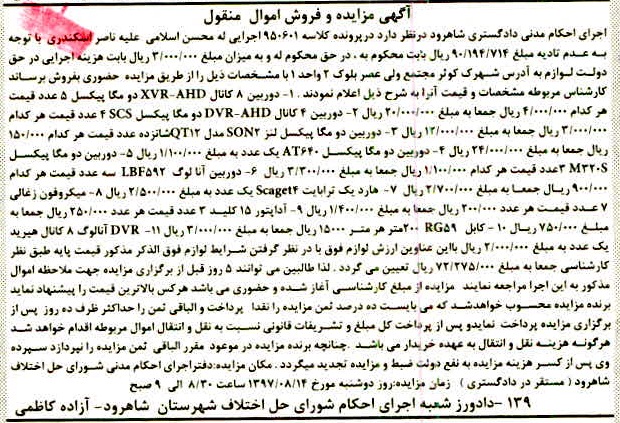 آگهی مزایده و فروش اموال منقول
اجرای احکام مدنی دادگستری شاهرود درنظر دارد درپرونده کلاسه ۹۵۰۶۰۱ اجرایی له محسن اسلامی علیه ناصر اسکندری با توجه
به عدم تادیه مبلغ ۹۰/۱۹۴/۷۱۴ ریال بابت محکوم به ، در حق محکوم له و به میزان مبلغ ۳/۰۰۰/۰۰۰ ریال بابت هزینه اجرایی در حق
دولت لوازم به آدرس شهرک کوثر مجتمع ولی عصر بلوک ۲ واحد ۱ با مشخصات ذیل را از طریق مزایده حضوری بفروش برساند
کارشناس مربوطه مشخصات و قیمت آنرا به شرح ذیل اعلام نمودند . ۱- دوربین ۸ کانال XVR-AHD دو مگا پیکسل ۵ عدد قیمت
هر کدام ۴/۰۰۰/۰۰۰ ریال جمعا به مبلغ ۲۰/۰۰۰/۰۰۰ ریال ۲- دوربین ۴ کانال DVR-AHD دو مگا پیکسل SCS ۴ عدد قیمت هر کدام
۳/۰۰۰/۰۰۰ ریال جمعا به مبلغ ۱۲/۰۰۰/۰۰۰ ریال ۳- دوربین دو مگا پیکسل لنز SON۲ مدل QT۱۲ شانزده عدد قیمت هر کدام ۱۵۰/۰۰۰
ریال جمعا به مبلغ ۲۴/۰۰۰/۰۰۰ ریال ۴- دوربین دو مگا پیکسل AT۶۴۰ یک عدد به مبلغ ۱/۱۰۰/۰۰۰ ریال ۵- دوربین دو مگا پیکسل
M۳۲۰S ۳عدد قیمت هر کدام ۱/۱۰۰/۰۰۰ ریال جمعا به مبلغ ۳/۳۰۰/۰۰۰ ریال ۶- دوربین آنا لوگ LBF۵۹۲ سه عدد قیمت هر کدام
۹۰۰/۰۰۰ ریال جمعا به مبلغ ۲/۷۰۰/۰۰۰ ریال ۷- هارد یک ترابایت Scaget۴ یک عدد به مبلغ ۲/۵۰۰/۰۰۰ ریال ۸- میکروفون زغالی
۷ عدد قیمت هر عدد ۲۰۰/۰۰۰ ریال جمعا به مبلغ ۱/۴۰۰/۰۰۰ ریال ۹- آداپتور ۱۵ کلید ۳ عدد قیمت هر عدد ۲۵۰/۰۰۰ ریال جمعا به
مبلغ ۷۵۰/۰۰۰ ریال ۱۰ - کابل RG۵۹ ۲۰۰متر هر متر ۱۵۰۰۰ ریال جمعا به مبلغ ۳/۰۰۰/۰۰۰ ریال ۱۱- DVR آنالوگ ۸ کانال هیرید
یک عدد به مبلغ ۲/۰۰۰/۰۰۰ ریال بااین عناوین ارزش لوازم فوق با در نظر گرفتن شرایط لوازم فوق الذکر مذکور قیمت پایه طبق نظر
کارشناسی جمعا به مبلغ ۷۲/۲۷۵/۰۰۰ ریال تعیین می گردد . لذا طالبین می توانند ۵ روز قبل از برگزاری مزایده جهت ملاحظه اموال
مذکور به این اجرا مراجعه نمایند مزایده از مبلغ کارشناسی آغاز شده و حضوری می باشد هرکس بالاترین قیمت را پیشنهاد نماید
برنده مزایده محسوب خواهدشد که می بایست ده درصد ثمن مزایده را نقدا پرداخت و الباقی ثمن را حداکثر ظرف ده روز پس از
برگزاری مزایده پرداخت نمایدو پس از پرداخت کل مبلغ و تشریفات قانونی نسبت به نقل و انتقال اموال مربوطه اقدام خواهد شد
هرگونه هزینه نقل و انتقال به عهده خریدار می باشد .چنانچه برنده مزایده در موعود مقرر الباقی ثمن مزایده را نپردازد سپرده
وی پس از کسر هزینه مزایده به نفع دولت ضبط و مزایده تجدید میگردد . مکان مزایده:دفتراجرای احکام مدنی شورای حل اختلاف
شاهرود ( مستقر در دادگستری ) زمان مزایده:روز دوشنبه مورخ ۱۳۹۷/۰۸/۱۴ ساعت ۸/۳۰ الی ۹ صبح
۱۳۹ -دادورز شعبه اجرای احکام شورای حل اختلاف شهرستان شاهرود- آزاده کاظمی